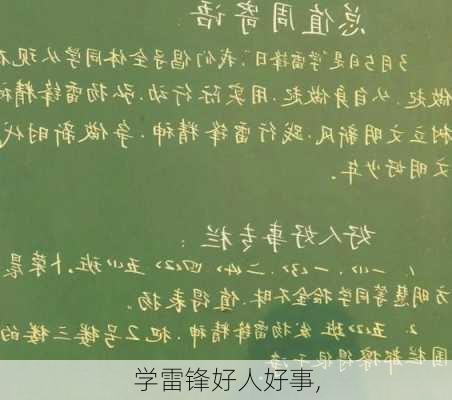 总值周寄语
3月5日是"学雷锋日",我们倡导全体同学从现在
做起.从自身做起.用实际行动.弘扬雷锋精神
树立文明新风.践行雷锋精神.争做新时代
文明好少年。
好人好事专栏:
1. 一(1)、一(3)、二(4)、四(2)、五(1)班.卜荣晨
方明慧等同学拾金不昧.值得表扬。
2. 五(2)班发扬雷锋精神.把2号楼三楼的
围栏都擦得很干净
学雷锋好人好事,